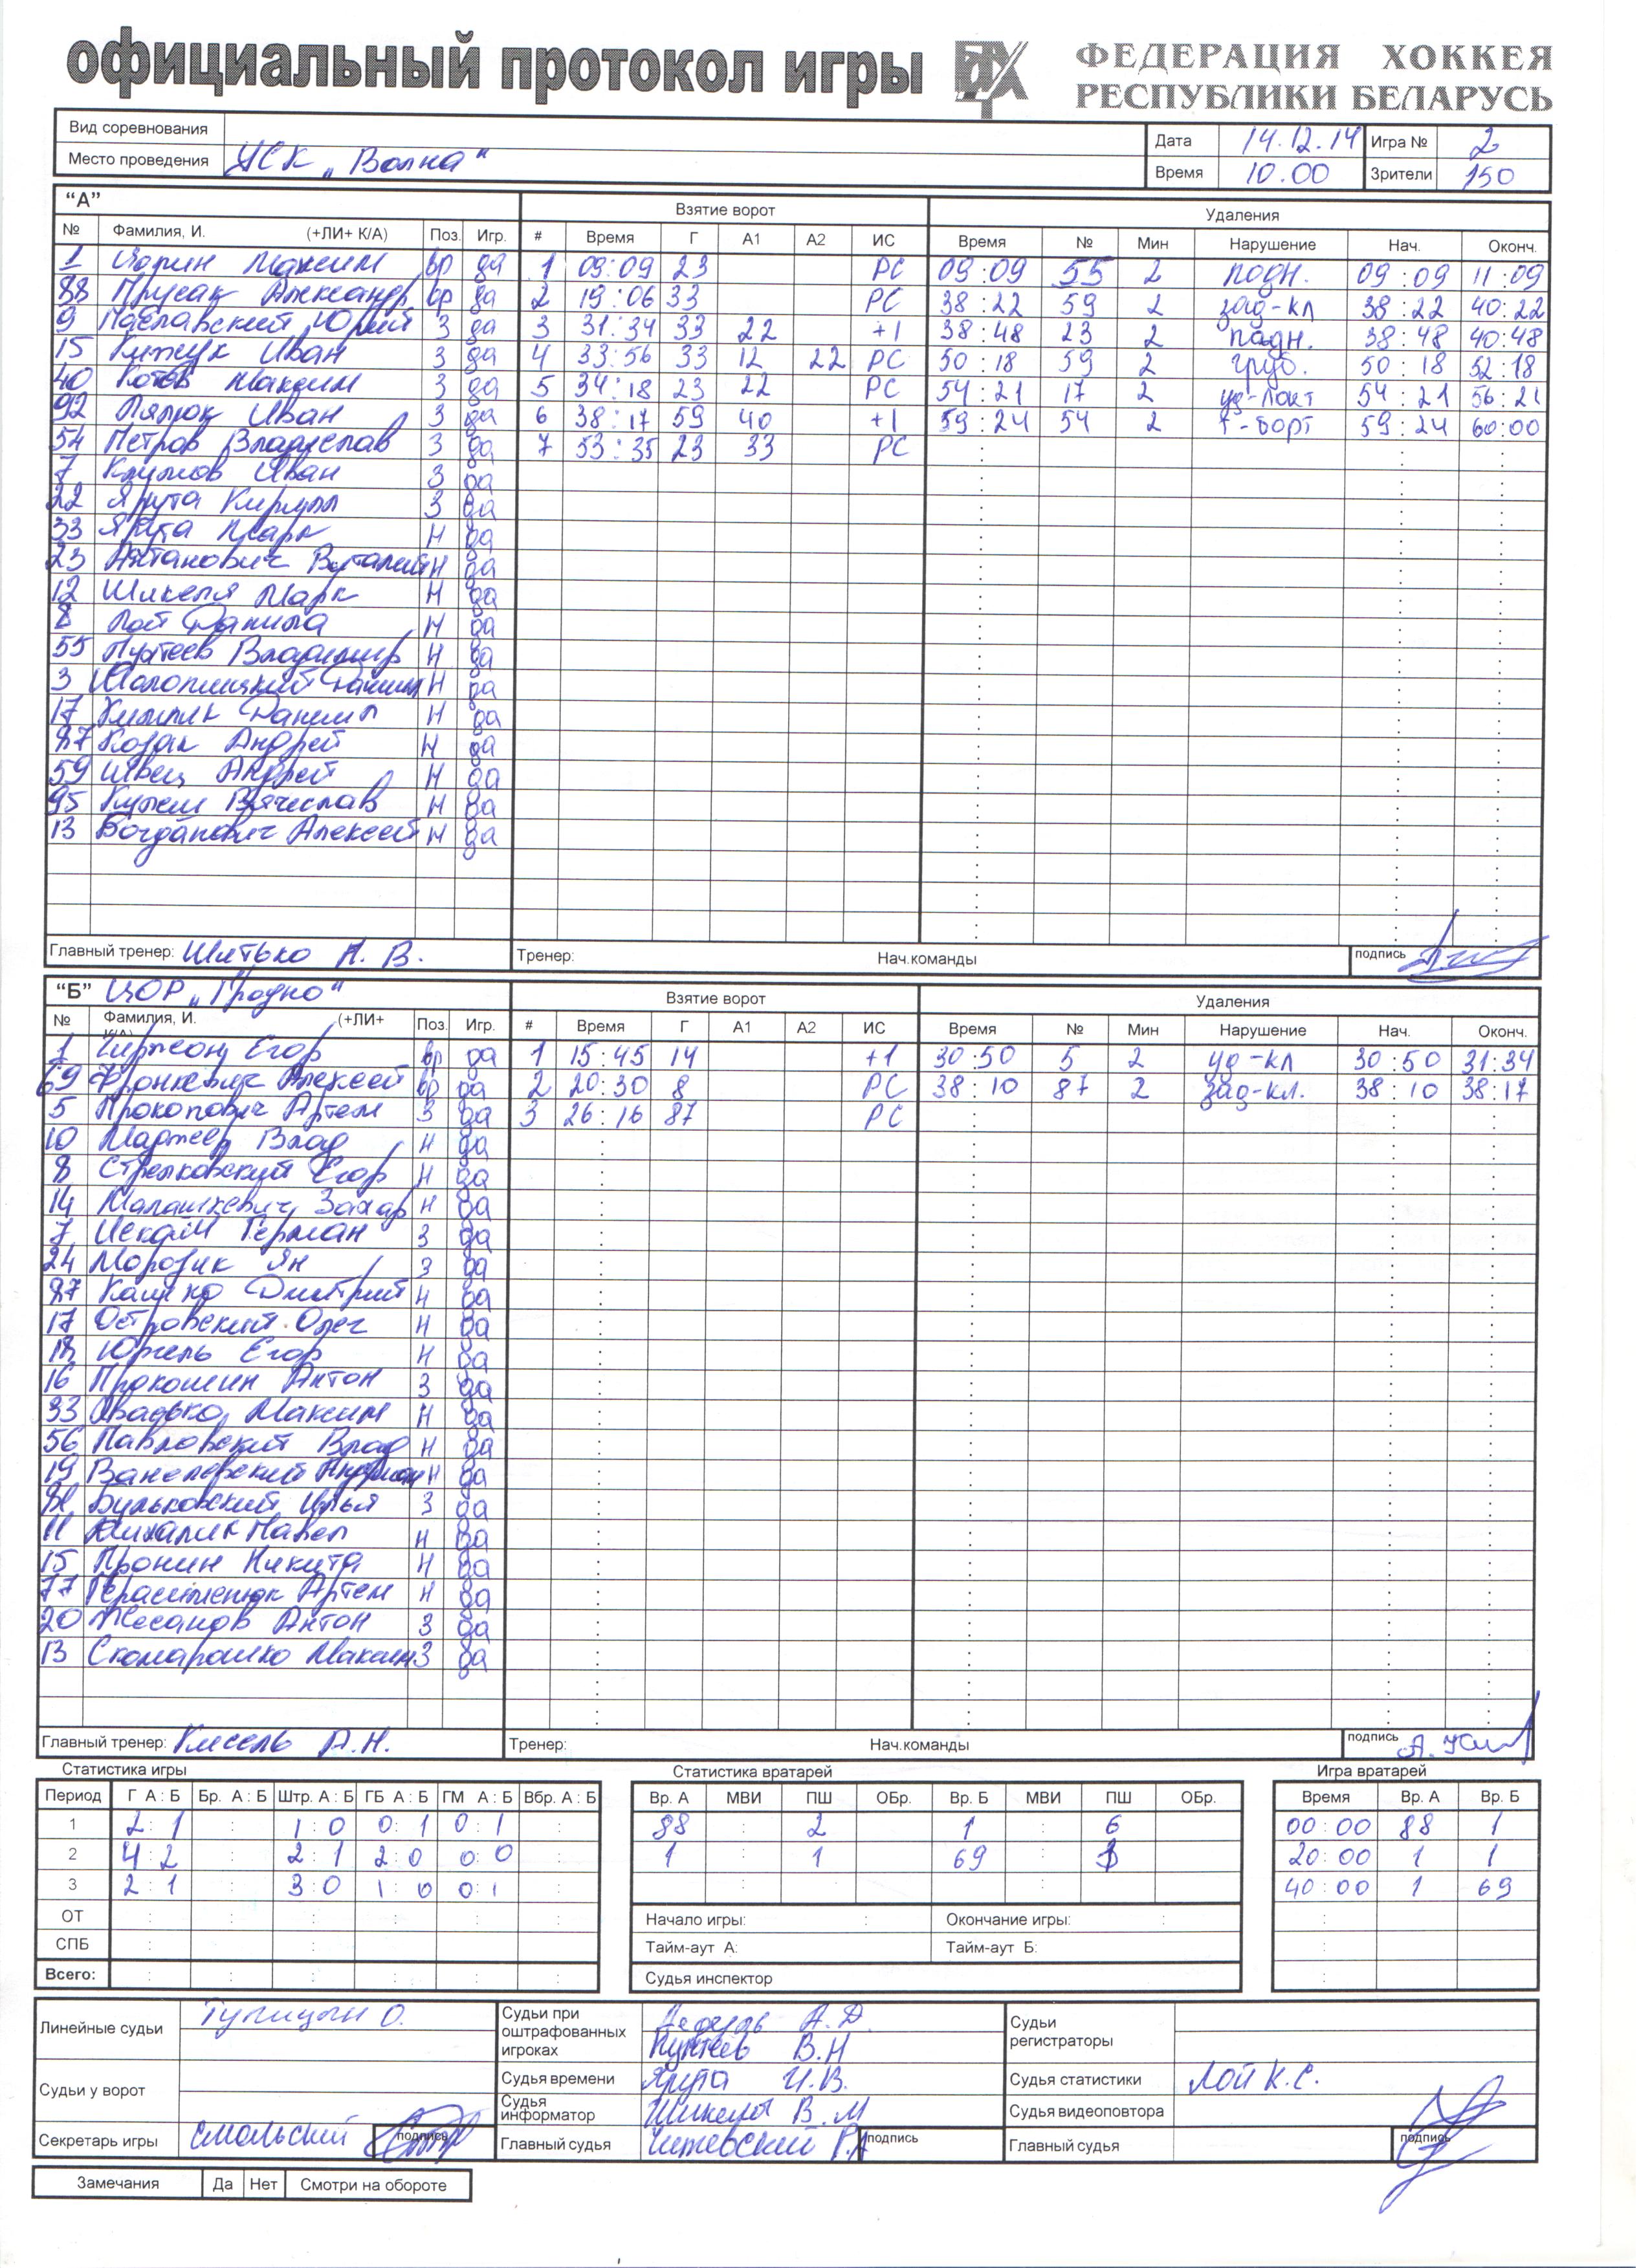 официальный протокол игры
ФЕДЕРАЦИЯ ХОККЕЯ
РЕСПУБЛИКИ БЕЛАРУСЬ
Вид соревнования
Дата 14.12.14 Игра № 2
Место проведения УСК „Волна“
Время 10.00 Зрители 150
“А” Взятие ворот Удаления
№ Фамилия, И. (+ЛИ+ К/А) Поз. Игр. # Время Г А1 А2 ИС Время № Мин Нарушение Нач. Оконч.
1 Максим вр да 1 09:09 23 РС 09:09 55 2 подн. 09:09 11:09
88 Прусак Александр вр да 2 19:06 33 РС 38:22 59 2 зад-кл 38:22 40:22
9 Юрий З да 3 31:34 33 22 +1 38:48 23 2 подн. 38:48 40:48
15 Иван З да 4 33:56 33 12 22 РС 50:18 59 2 груб. 50:18 52:18
40 Котов Максим З да 5 34:18 23 22 РС 54:21 17 2 уд-локт 54:21 56:21
92 Иван З да 6 38:17 59 40 +1 59:24 54 2 т-борт 59:24 60:00
54 Петров Владислав З да 7 53:35 23 33 РС
7 Климов Иван З да
22 Ярута Кирилл З да
33 Ярута Марк Н да
23 Виталий Н да
12 Шикеля Марк Н да
8 Лой Данила Н да
55 Пунтеев Владимир Н да
3 Н да
17 Данила Н да
87 Козак Андрей Н да
59 Швец Андрей Н да
95 Вячеслав Н да
13 Богданович Алексей Н да
Главный тренер: Шитько А. В. Тренер: Нач.команды подпись
“Б” ЦОР „Гродно“ Взятие ворот Удаления
№ Фамилия, И. (+ЛИ+ К/А) Поз. Игр. # Время Г А1 А2 ИС Время № Мин Нарушение Нач. Оконч.
1 Егор вр да 1 15:45 14 +1 30:50 5 2 уд-кл 30:50 31:34
69 Фронкевич Алексей вр да 2 20:30 8 РС 38:10 87 2 зад-кл. 38:10 38:17
5 Прокопович Артем З да 3 26:16 87 РС
10 Влад Н да
8 Стрелковский Егор Н да
14 Малашкевич Захар Н да
7 Герман З да
24 Морозик Ян З да
87 Дмитрий Н да
17 Островский Олег Н да
18 Юргель Егор Н да
16 Прокошин Антон З да
93 Максим Н да
56 Павловский Влад Н да
19 Н да
Бульковский Илья З да
11 Михалик Павел Н да
15 Пронин Никита Н да
77 Герасименюк Артем Н да
20 Антон З да
13 Скомарошко Максим З да
Главный тренер: Кисель А.Н. Тренер: Нач.команды подпись
Статистика игры Статистика вратарей Игра вратарей
Период Г А : Б Бр. А : Б Штр. А : Б ГБ А : Б ГМ А : Б Вбр. А : Б Вр. А МВИ ПШ ОБр. Вр. Б МВИ ПШ ОБр. Время Вр. А Вр. Б
1 2:1 1:0 0:1 0:1 88 2 1 6 00:00 88 1
2 4:2 2:1 2:0 0:0 1 1 69 20:00 1 1
3 2:1 3:0 1:0 0:1 40:00 1 69
ОТ Начало игры: Окончание игры:
СПБ Тайм-аут А: Тайм-аут Б:
Всего: Судья инспектор
Линейные судьи Тупицын О. Судьи при оштрафованных игроках А.Д. Судьи регистраторы
Пунтеев В.Н
Судьи у ворот Судья времени Ярута И.В. Судья статистики Лой К.С.
Судья информатор Шикеля В.М Судья видеоповтора
Секретарь игры Смольский подпись Главный судья подпись Главный судья подпись
Замечания Да Нет Смотри на обороте